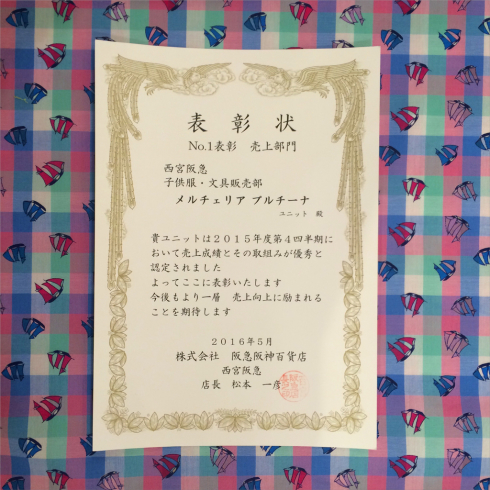 表彰状
No.1表彰 売上部門
西宮阪急
子供服・文具販売部
メルチェリア プルチーナ
ユニット 殿
貴ユニットは2015年度第4四半期に
おいて売上成績とその取組みが優秀と
認定されました
よってここに表彰いたします
今後もより一層 売上向上に励まれる
ことを期待します
2016年5月
株式会社 阪急阪神百貨店
西宮阪急
店長 松本 一彦